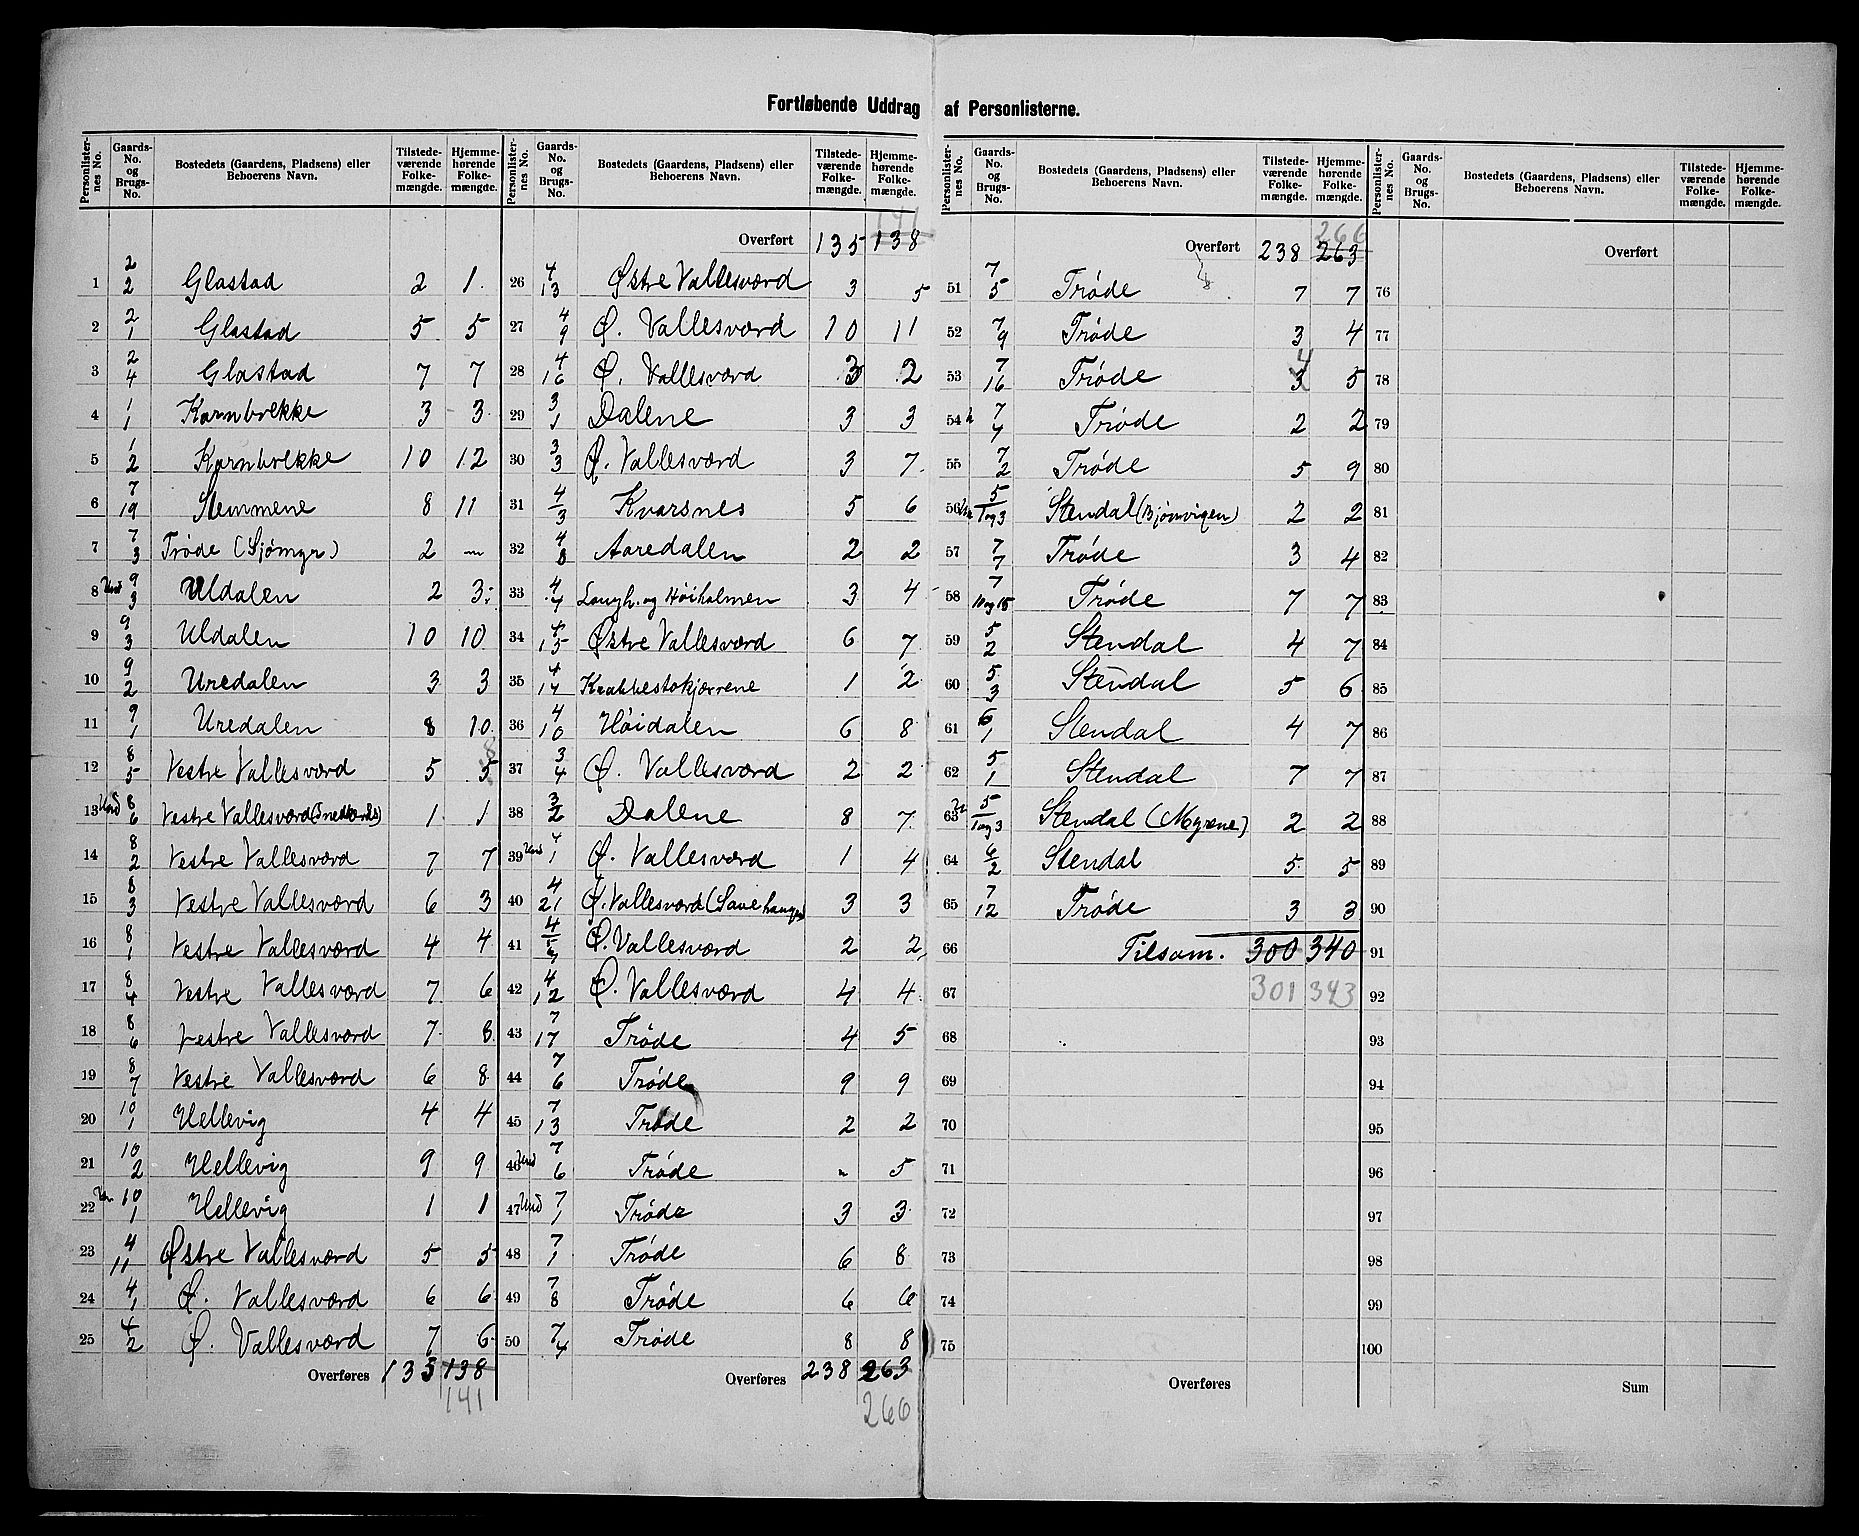 Fortløbende Uddrag af Personlisterne.
Personlister- nes No. | Gaards- No. og Brugs- No. | Bostedets (Gaardens, Pladsens) eller Beboerens Navn. | Tilstede- værende Folke- mængde. | Hjemme- hørende Folke- mængde.
1 2/2 Glastad 2 1.
2 2/1 Glastad 5 5
3 2/4 Glastad 7 7
4 1/1 Kornbrekke 3 3
5 1/2 Kornbrekke 10 12
6 7/19 Stemmene 8 11
7 7/3 Trøde (Sjømyr) 2 "
8 Und 9/3 Uldalen 2 3
9 9/3 Uldalen 10 10
10 9/2 Uredalen 3 3
11 9/1 Uredalen 8 10
12 8/5 Vestre Vallesværd 5 5 8
13 Und 8/6 Vestre Vallesværd 1 1
14 8/2 Vestre Vallesværd 7 7
15 8/3 Vestre Vallesværd 6 3
16 8/1 Vestre Vallesværd 4 4
17 8/4 Vestre Vallesværd 7 6
18 8/6 Vestre Vallesværd 7 8
19 8/7 Vestre Vallesværd 6 8
20 10/1 Hellevig 4 4
21 10/2 Hellevig 9 9
22 Un 10/1 Hellevig 1 1
23 4/11 Østre Vallesværd 5 5
24 4/1 Ø. Vallesværd 6 6
25 4/2 Ø. Vallesværd 7 6
Overføres 135 138
141
Personlister- nes No. | Gaards- No. og Brugs- No. | Bostedets (Gaardens, Pladsens) eller Beboerens Navn. | Tilstede- værende Folke- mængde. | Hjemme- hørende Folke- mængde.
141
Overført 135 138
26 4/13 Østre Vallesværd 3 5
27 4/9 Ø. Vallesværd 10 11
28 4/16 Ø. Vallesværd 3 2
29 3/1 Dalene 3 3
30 3/3 Ø. Vallesværd 3 7
31 4/3 Kvarsnes 5 6
32 4/8 Aaredalen 2 2
33 4/7 Langh. og Høiholmen 3 4
34 4/15 Østre Vallesværd 6 7
35 4/14 Krabbestokjærrene 1 2
36 4/10 Høidalen 6 8
37 3/4 Ø. Vallesværd 2 2
38 3/2 Dalene 8 7
39 Und 4/1 Ø. Vallesværd 1 4
40 4/21 Ø. Vallesværd 3 3
41 Ø. Vallesværd 2 2
42 4/12 Ø. Vallesværd 4 4
43 7/17 Trøde 4 5
44 7/6 Trøde 9 9
45 7/13 Trøde 2 2
46 Und 7/6 Trøde " 5
47 Und 7/1 Trøde 3 3
48 7/1 Trøde 6 8
49 7/8 Trøde 6 6
50 7/4 Trøde 8 8
Overføres 238 263
266
Personlister- nes No. | Gaards- No. og Brugs- No. | Bostedets (Gaardens, Pladsens) eller Beboerens Navn. | Tilstede- værende Folke- mængde. | Hjemme- hørende Folke- mængde.
266
Overført 238 263
51 7/5 Trøde 7 7
52 7/9 Trøde 3 4
53 7/16 Trøde 3 4 5
54 7/4 Trøde 2 2
55 7/2 Trøde 5 9
56 5/1og3 Stendal (Bjønvigen) 2 2
57 7/7 Trøde 3 4
58 7/10og15 Trøde 7 7
59 5/2 Stendal 4 7
60 5/3 Stendal 5 6
61 6/1 Stendal 4 7
62 5/1 Stendal 7 7
63 Un 5/1og3 Stendal (Myrene) 2 2
64 6/2 Stendal 5 5
65 7/12 Trøde 3 3
66 Tilsam. 300 340
67 301 343
68
69
70
71
72
73
74
75
Overføres
Personlister- nes No. | Gaards- No. og Brugs- No. | Bostedets (Gaardens, Pladsens) eller Beboerens Navn. | Tilstede- værende Folke- mængde. | Hjemme- hørende Folke- mængde.
Overført
76
77
78
79
80
81
82
83
84
85
86
87
88
89
90
91
92
93
94
95
96
97
98
99
100
Sum